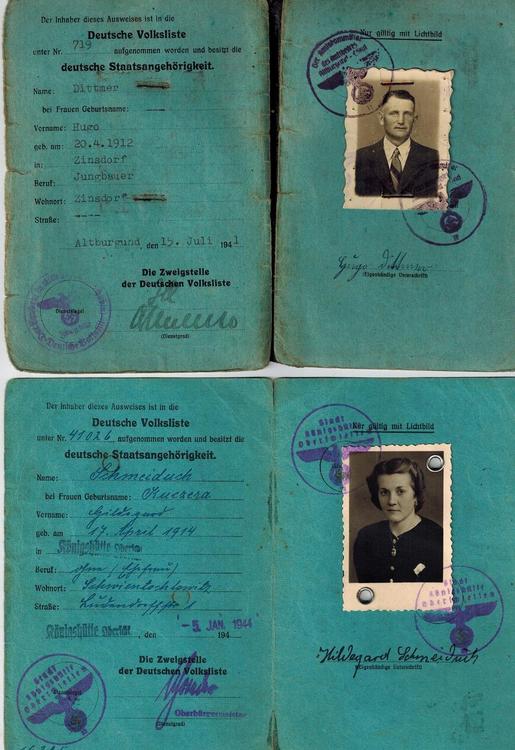 Der Inhaber dieses Ausweises ist in die
Deutsche Volksliste
unter Nr. 719 aufgenommen worden und besitzt die
deutsche Staatsangehörigkeit.
Name: Dittmer
bei Frauen Geburtsname: ----
Vorname: Hugo
geb. am: 20.4.1912
in: Zinsdorf
Beruf: Jungbauer
Wohnort: Zinsdorf
Straße: ----
Altburgund, den 15. Juli 1941
Die Zweigstelle
der Deutschen Volksliste
Dienstsiegel
(Dienstgrad)
Nur gültig mit Lichtbild
Hugo Dittmer
(Eigenhändige Unterschrift)
Der Inhaber dieses Ausweises ist in die
Deutsche Volksliste
unter Nr. 41026 aufgenommen worden und besitzt die
deutsche Staatsangehörigkeit.
Name: Schmeiduch
bei Frauen Geburtsname: Kuczera
Vorname: Hildegard
geb. am 17. April 1914
in Königshütte Oberschl.
Beruf: ohne (Ehefrau)
Wohnort: Schwientochlowitz
Straße: Ludendorffstr 1
Königshütte Oberschl., den -5. JAN. 1944 194
Die Zweigstelle
der Deutschen Volksliste
Oberbürgermeister
(Dienstgrad)
Nur gültig mit Lichtbild
Stadt
Königshütte
Oberschlesien
Stadt
Königshütte
Oberschlesien
Hildegard Schmeiduch
(Eigenhändige Unterschrift)
Stadt
Königshütte
Oberschlesien